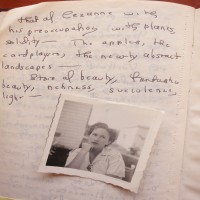 that of Cezanne with
his preoccupation with planes,
solidity — The apples, the
cardplayers, the nearly abstract
landscapes —
of beauty,
beauty, richness, succulence,
light —